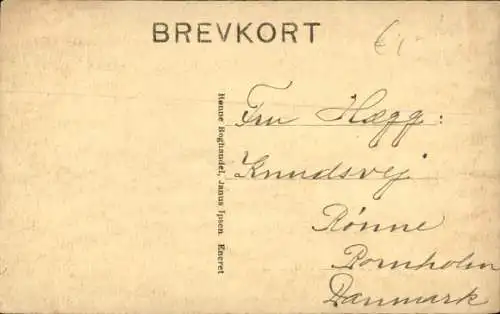 BREVKORT
Rønne Boghandel, Janus Ipsen. Eneret
Fru Hægg:
Knudsvej
Rønne
Bornholm
Danmark